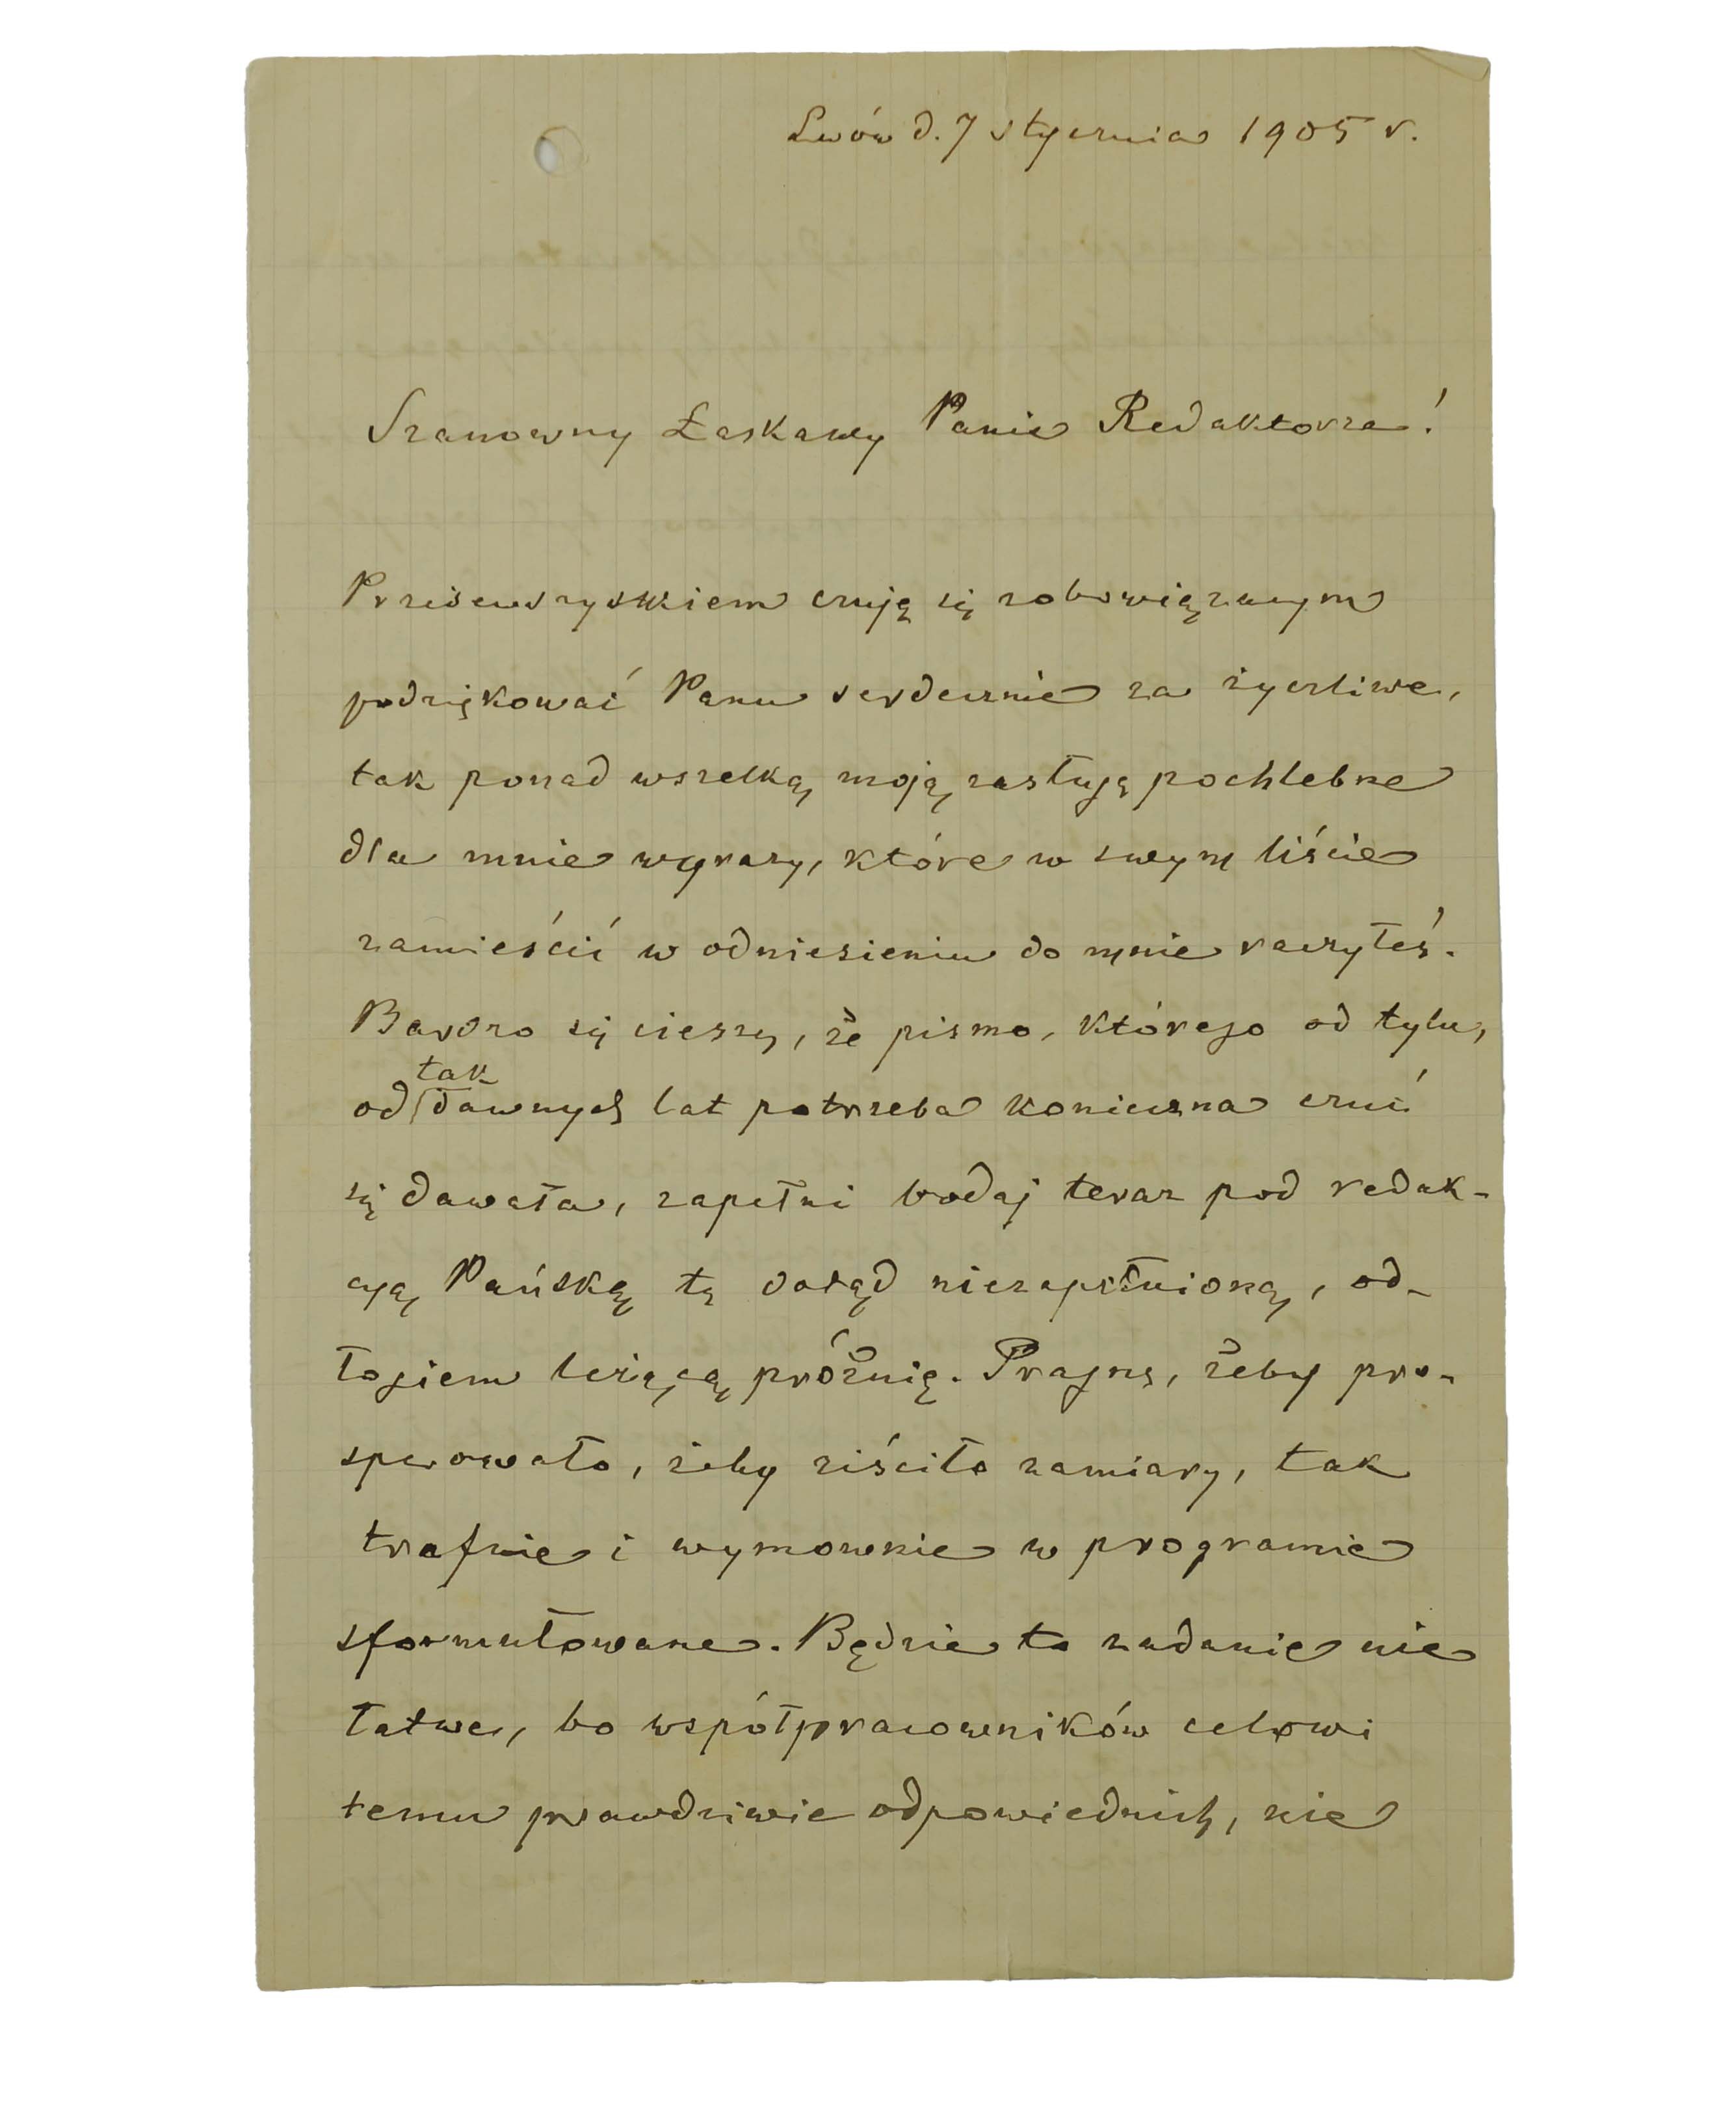 Lwów d. 7 stycznia 1905 r.
Szanowny Łaskawy Panie Redaktorze!
Przedewszystkiem czuję się zobowiązanym
podziękować Panu serdecznie za życzliwe,
tak ponad wszelką moją zasługę pochlebne
dla mnie wyrazy, które w swym liście
zamieścić w odniesieniu do mnie raczyłeś.
Bardzo się cieszę, że pismo, którego od tylu,
od tak dawnych lat potrzeba konieczna czuć
się dawała, zapełni bodaj teraz pod redak-
cyą Pańską tę dotąd niezapełnioną, od-
łogiem leżącą próżnię. Pragnę, żeby pro-
sperowało, żeby ziściło zamiary, tak
trafnie i wymownie w programie
sformułowane. Będzie to zadanie nie
łatwe, bo współpracowników celowi
temu prawdziwie odpowiednich, nie